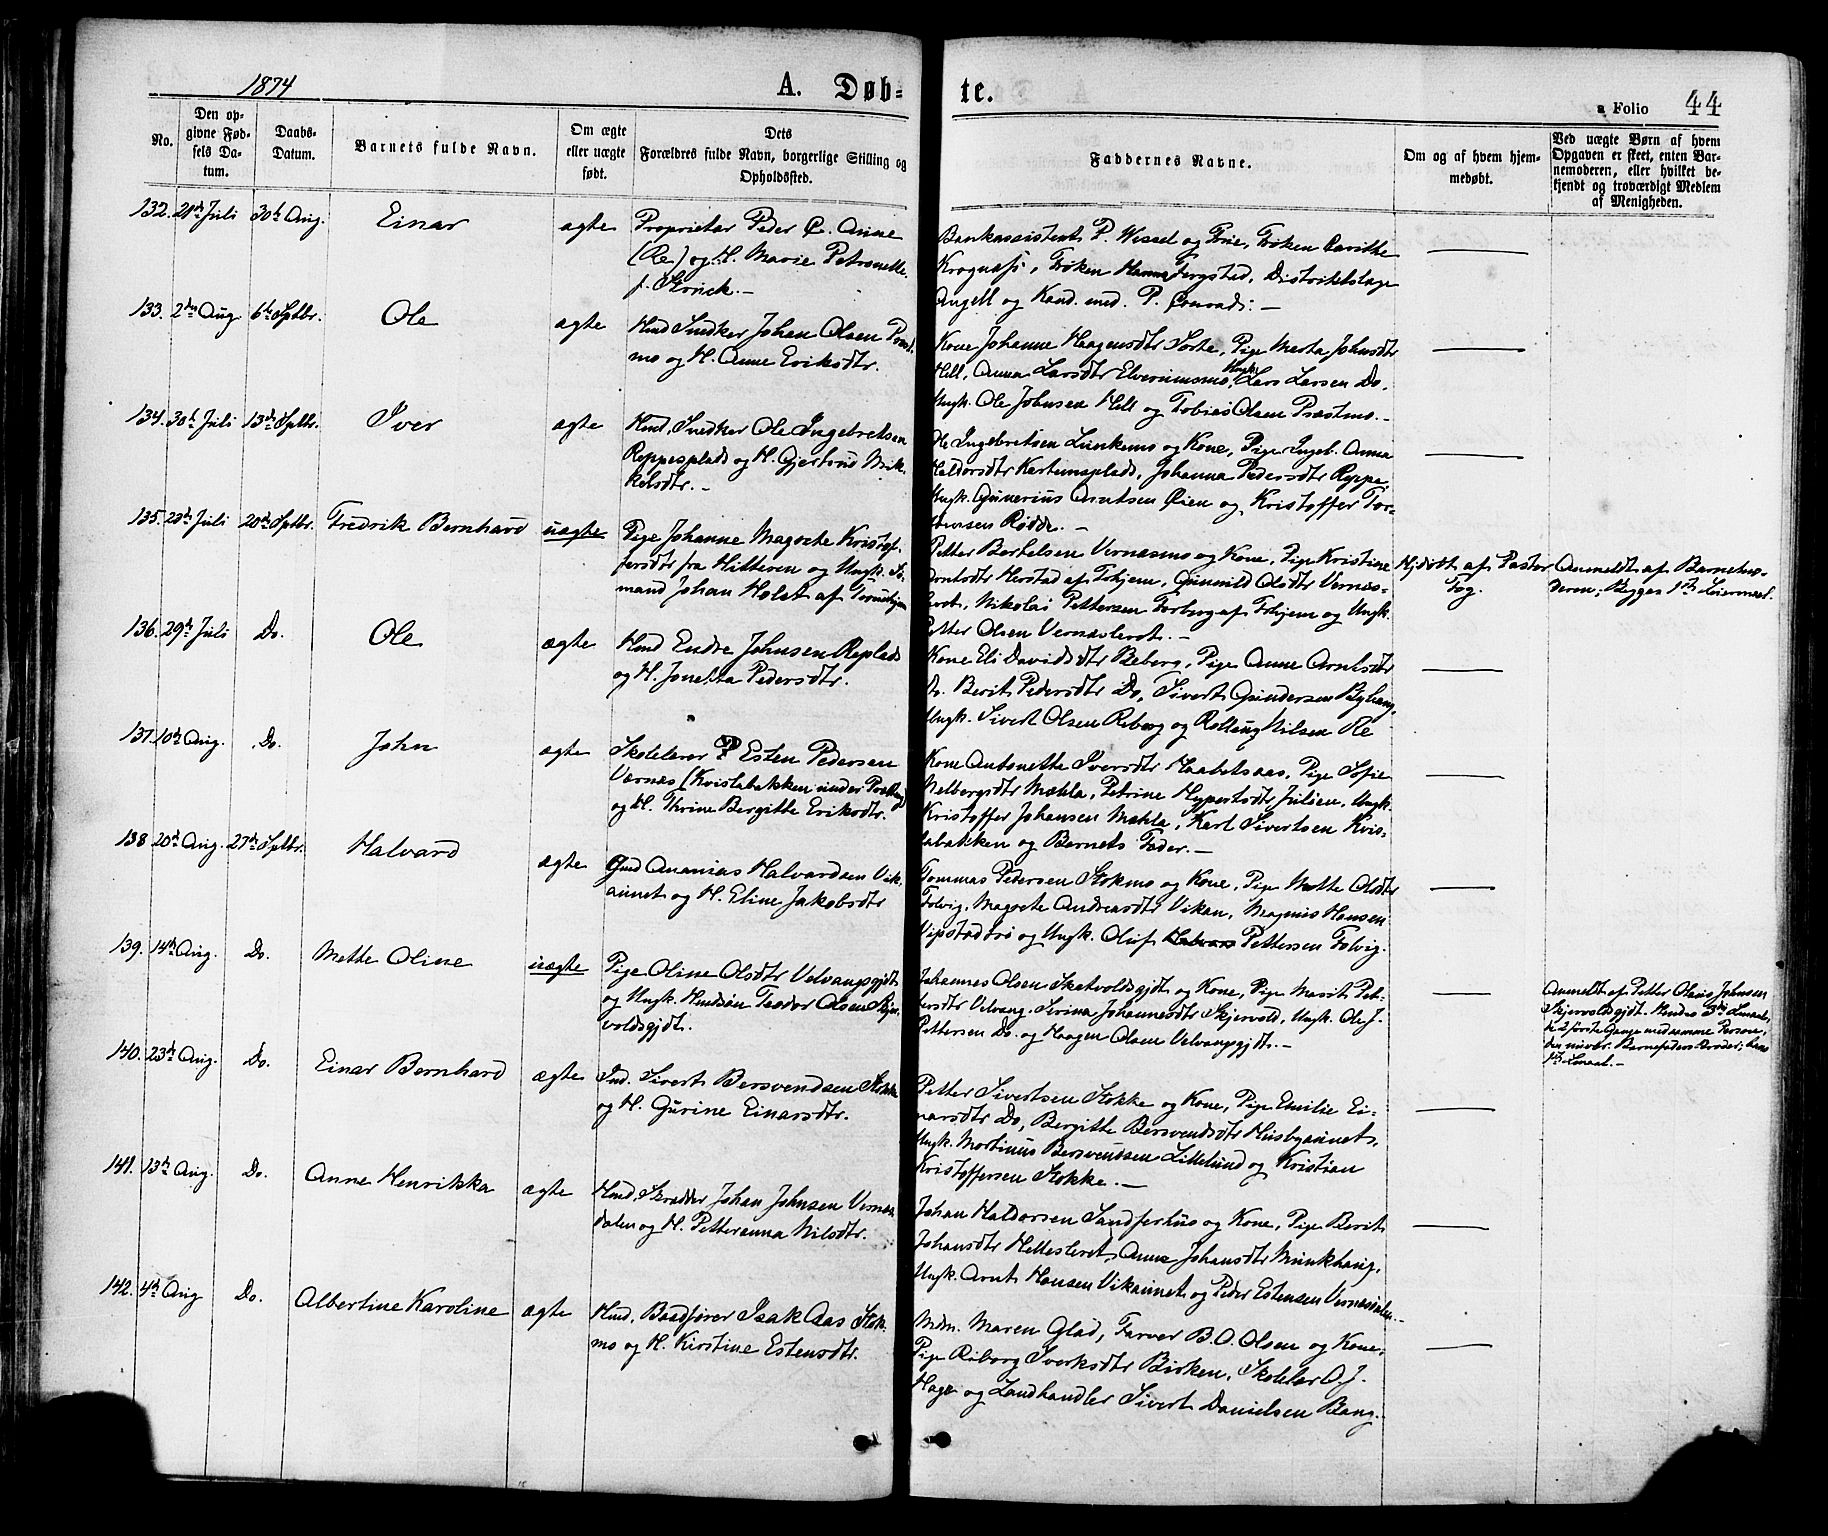 1874
A. Døb-
te.
a Folio 44
No.
Den op-
givne Fød-
sels Da-
tum.
Daabs-
Datum.
Barnets fulde Navn.
Om ægte
eller uægte
født.
Dets
Forældres fulde Navn, borgerlige Stilling og
Opholdssted.
Faddernes Navne.
Om og af hvem hjem-
medøbt.
Ved uægte Børn af hvem
Opgaven er skeet, enten Bar-
nemoderen, eller hvilket be-
kjendt og troværdigt Medlem
af Menigheden.
132. Juli 30te Aug. Einar ægte
Proprietær Peder Anne
og H. Marie Petronelle
Bankassistent P. Wessel og Frue, Frøken
Frøken Hanna Distriktslæge
Angell og Kand. med. P.
133. 2den Aug. 6te Sptbr. Ole ægte
Hmd Snedker Johan Olsen
mo og H. Anne Eriksdtr.
Kone Johanne Haagensdtr Pige Marta Johnsdtr
Hell, Anna Larsdtr Lars Larsen Do.
Ungk. Ole Johnsen Hell og Tobias Olsen Præstmo.
134. 30te Juli 13de Sptbr. Iver ægte
Hmd. Snedker Ole Ingebretsen
Reppesplads og H. Gjertrud Mik-
kelsdtr.
Ole Ingebretsen og Kone, Pige Ingeb. Anna
Haldorsdtr Johanna Pedersdtr Reppe,
Ungk. Gunerius Arntsen Øien og Kristoffer Tor-
stensen Rødde.
135. Juli 20de Sptbr. Fredrik Bernhard uægte
Pige Johanne Magrete Kristof-
fersdtr fra Hitteren og Ungk. Sø-
mand Johan Holst af
Petter Bartelsen Vernæsmo og Kone, Pige Kristine
Arntsdtr af Trhjem, Gunnild Olsdtr Vernæs-
leret, Nikolai Pettersen af Trhjem og Ungk.
Petter Olsen Vernæsleret.
Hjdøbt af Pastor
Fog.
Anmeldt af Barnemo-
deren; Begges 1ste Leiermaal.
136. 29de Juli Do. Ole ægte
Hmd Endre Johnsen
og H. Jonetta Pedersdtr.
Kone Eli Davidsdtr Reberg, Pige Anne Arntsdtr
Do. Berit Pedersdtr Do, Sivert Gundersen
Ungk. Sivert Olsen Reberg og Nilsen Re
137. 10de Aug. Do. John ægte
Skolelærer P Esten Pedersen
Værnes (Kvislabakken under
og H. Bergitte Eriksdtr.
Kone Antonette Iversdtr Pige Sofie
Mæhla, Petrine Ungk.
Kristoffer Johansen Mæhla, Karl Sivertsen Kvis-
labakken og Barnets Fader.
138 20de Aug. 27de Sptbr. Halvard ægte
Gmd Ananias Halvardsen Vik-
aunet og H. Eline Jakobsdtr
Tommas Pedersen Stokmo og Kone, Pige Mette Olsdtr
Magrete Andreasdtr Vikan, Magnus Hansen
og Ungk. Oluf Pettersen
139. 14de Aug. Do. Mette Oline uægte
Pige Oline Olsdtr Velvangsgjdt
og Ungk. Teodor Olsen Skjer-
voldsgjdt.
Johannes Olsen Skatvoldsgjdt og Kone, Pige Marit Pet-
tersdtr Velvang, Serina Johannesdtr Skjervold, Ungk. Ole J.
Pettersen Do. og Haagen Olsen Velvangsgjdt.
Anmeldt af Petter Olaus Johnsen
Skjervoldsgjdt. Hendes 3die
2 første Gange med samme Person,
Barnefaders Broder;
140. 23de Aug. Do. Einar Bernhard ægte
Ind. Sivert Bersvendsen Stokke
og H. Gurine Einarsdtr.
Petter Sivertsen Stokke og Kone, Pige Emilie Ei-
narsdtr Do, Bergitte Bersvendsdtr Husbyaunet,
Ungk. Martinus Bersvendsen Lillelund og Kristian
Kristoffersen Stokke.
141. 13de Aug. Do. Anne Henrikka ægte
Hmd. Skrædder Johan Johnsen Vernæs-
dalen og H. Petteranna Nilsdtr.
Johan Haldorsen Sandferhus og Kone, Pige Berit
Johansdtr Hellesleret, Anne Johansdtr Munkhaug,
Ungk. Arnt Hansen Vikaunet og Peder Estensen Vernæsdalen.
142. 4de Aug Do. Albertine Karoline ægte
Hmd. Baadfører Isak Aas Stok-
mo og H. Kirstine Estensdtr.
Mdm. Maren Glad, Farver B. O. Olsen og Kone,
Pige Riborg Sverksdtr Birken, Skolelær O. J.
Hage og Landhandler Sivert Danielsen Bang.